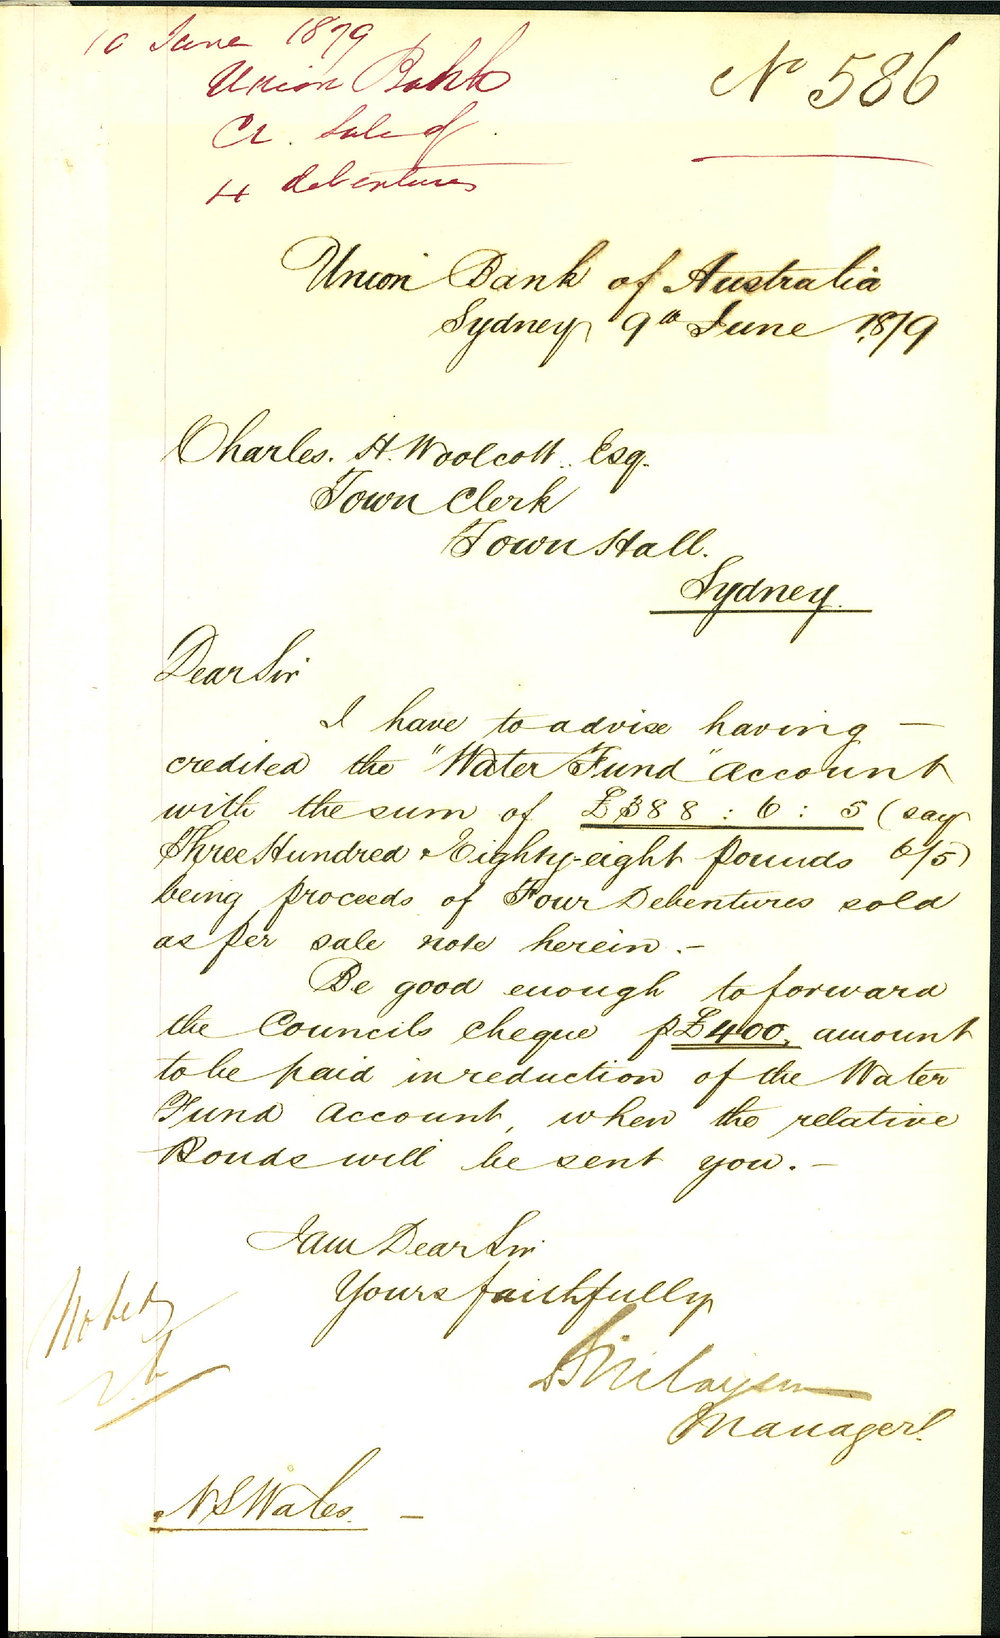 10 June 1879
Union Bank
Cr. Sale of
4 debentures
No 586
Union Bank of Australia
Sydney 9th June 1879
Charles. H. Woolcott. Esq.
Town Clerk
Town Hall.
Sydney.
Dear Sir
I have to advise having –
credited the "Water Fund" account
with the sum of £388 : 6 : 5 (say
Three Hundred & Eighty-eight pounds 6/5)
being proceeds of Four Debentures sold
as per sale note herein. –
Be good enough to forward
the Councils cheque p £400, amount
to be paid in reduction of the Water
Fund account, when the relative
Bonds will be sent you. –
I am Dear Sir
Yours faithfully
Manager.
Noted
N S Wales. –